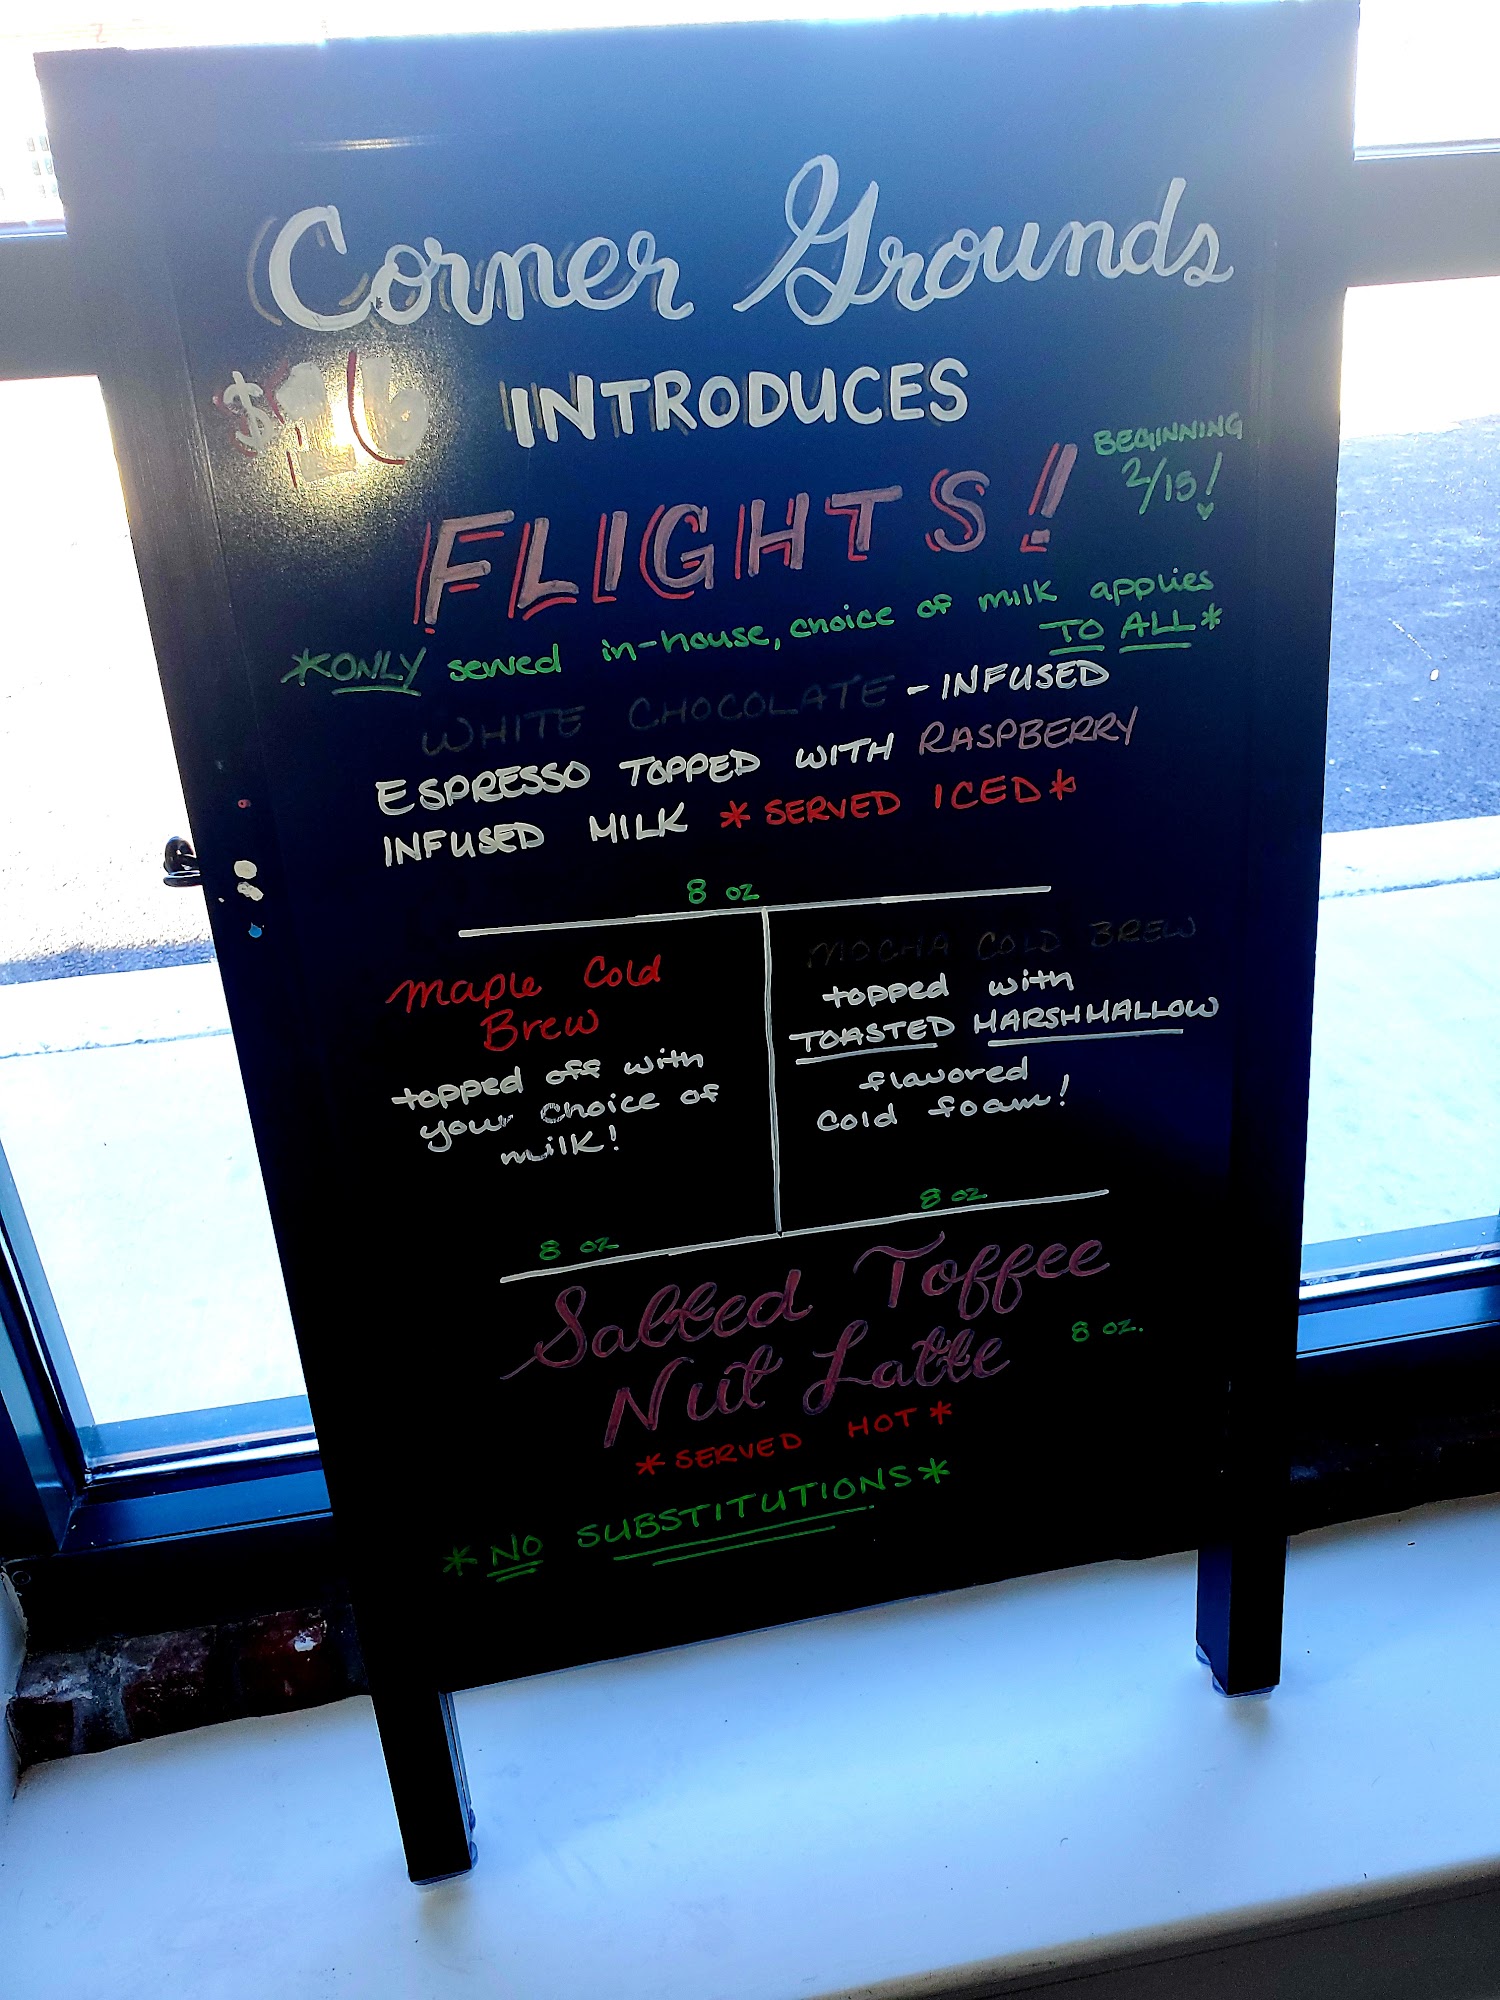 Corner Grounds
$16 INTRODUCES
FLIGHTS!
BEGINNING
2/15!
*ONLY served in-house, choice of milk applies
TO ALL*
WHITE CHOCOLATE - INFUSED
ESPRESSO TOPPED WITH RASPBERRY
INFUSED MILK *SERVED ICED*
8 oz
Maple Cold
Brew
topped off with
your choice of
milk!
8 oz
MOCHA COLD BREW
topped with
TOASTED MARSHMALLOW
flavored
cold foam!
8 oz
Salted Toffee
Nut Latte
8 oz.
*SERVED HOT*
*NO SUBSTITUTIONS*